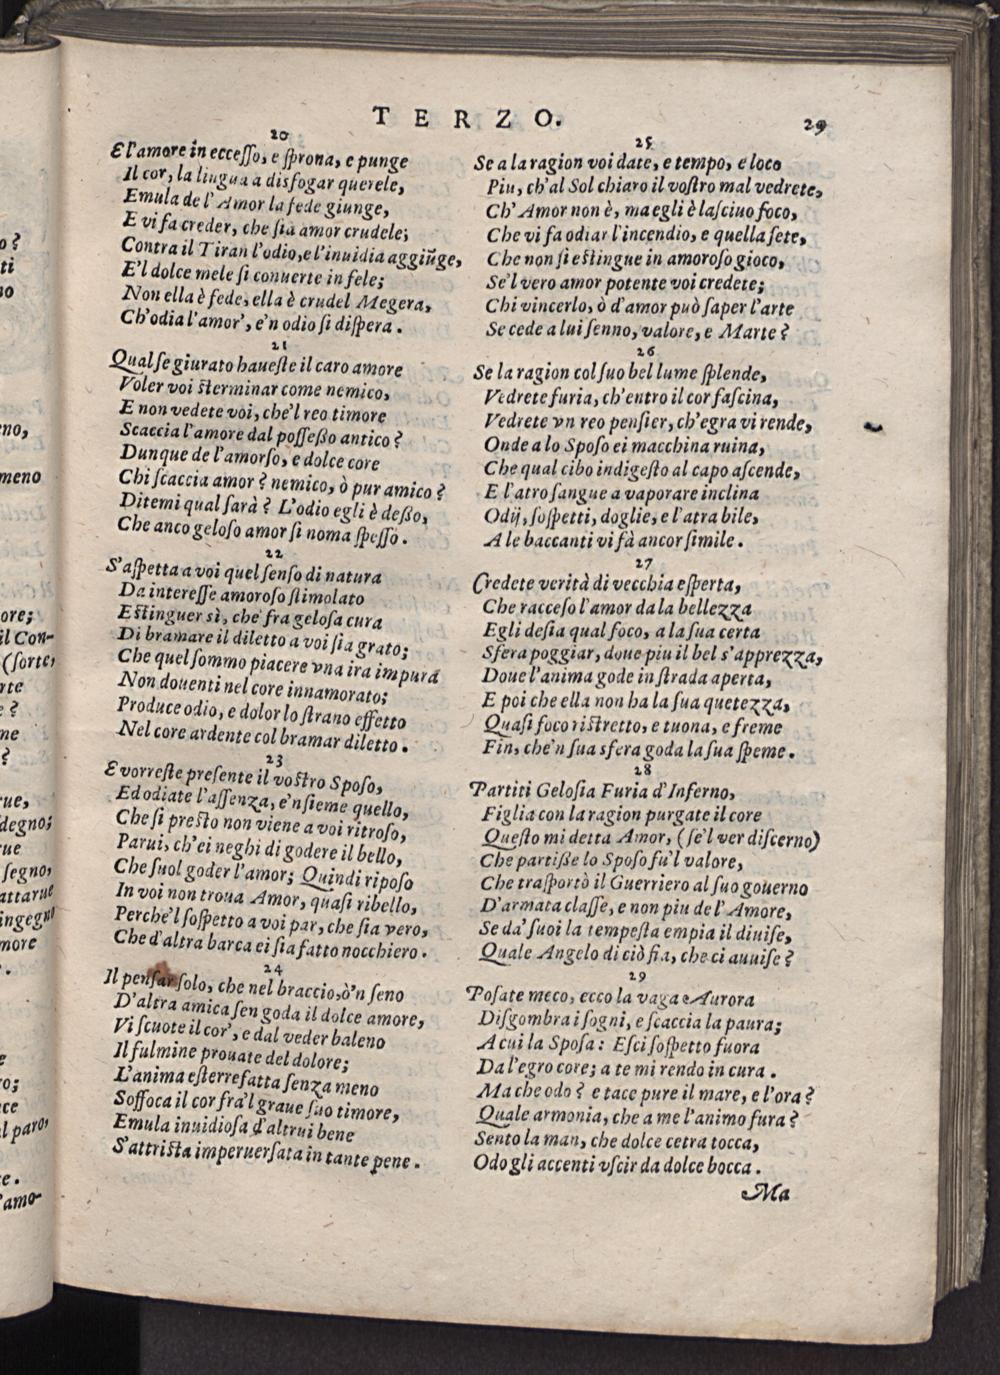 TERZO.
29
20
E l'amore in eccesso, e sprona, e punge
Il cor, la lingua a disfogar querele,
Emula de l'Amor la fede giunge,
E vi fa creder, che sia amor crudele;
Contra il Tiran l'odio, e l'inuidia aggiũge,
E'l dolce mele si conuerte in fele;
Non ella è fede, ella è crudel Megera,
Ch'odia l'amor', e'n odio si dispera.
21
Qual se giurato haueste il caro amore
Voler voi sterminar come nemico,
E non vedete voi, che'l reo timore
Scaccia l'amore dal possesso antico?
Dunque de l'amorso, e dolce core
Chi scaccia amor? nemico, ò pur amico?
Ditemi qual sarà? L'odio egli è desso,
Che anco geloso amor si noma spesso.
22
S'aspetta a voi quel senso di natura
Da interesse amoroso stimolato
Estinguer sì, che fra gelosa cura
Di bramare il diletto a voi sia grato;
Che quel sommo piacere vna ira impura
Non douenti nel core innamorato;
Produce odio, e dolor lo strano effetto
Nel core ardente col bramar diletto.
23
E vorreste presente il vostro Sposo,
Ed odiate l'assenza, e'nsieme quello,
Che si presto non viene a voi ritroso,
Parui, ch'ei neghi di godere il bello,
Che suol goder l'amor; Quindi riposo
In voi non troua Amor, quasi ribello,
Perche'l sospetto a voi par, che sia vero,
Che d'altra barca ei sia fatto nocchiero.
24
Il pensar solo, che nel braccio, ò'n seno
D'altra amica sen goda il dolce amore,
Vi scuote il cor', e dal veder baleno
Il fulmine prouate del dolore;
L'anima esterrefatta senza meno
Soffoca il cor frà'l graue suo timore,
Emula inuidiosa d'altrui bene
S'attrista imperuersata in tante pene.
25
Se a la ragion voi date, e tempo, e loco
Piu, ch'al Sol chiaro il vostro mal vedrete,
Ch'Amor non è, ma egli è lasciuo foco,
Che vi fa odiar l'incendio, e quella sete,
Che non si estingue in amoroso gioco,
Se'l vero amor potente voi credete;
Chi vincerlo, ò d'amor può saper l'arte
Se cede a lui senno, valore, e Marte?
26
Se la ragion col suo bel lume splende,
Vedrete furia, ch'entro il cor fascina,
Vedrete vn reo pensier, ch'egra vi rende,
Onde a lo Sposo ei macchina ruina,
Che qual cibo indigesto al capo ascende,
E l'atro sangue a vaporare inclina
Odij, sospetti, doglie, e l'atra bile,
A le baccanti vi fà ancor simile.
27
Credete verità di vecchia esperta,
Che racceso l'amor da la bellezza
Egli desia qual foco, a la sua certa
Sfera poggiar, doue piu il bel s'apprezza,
Doue l'anima gode in strada aperta,
E poi che ella non ha la sua quetezza,
Quasi foco ristretto, e tuona, e freme
Fin, che'n sua sfera goda la sua speme.
28
Partiti Gelosia Furia d'Inferno,
Figlia con la ragion purgate il core
Questo mi detta Amor, (se'l ver discerno)
Che partisse lo Sposo fù'l valore,
Che trasportò il Guerriero al suo gouerno
D'armata classe, e non piu de l'Amore,
Se da' suoi la tempesta empia il diuise,
Quale Angelo di ciò fia, che ci auuise?
29
Posate meco, ecco la vaga Aurora
Disgombra i sogni, e scaccia la paura;
A cui la Sposa: Esci sospetto fuora
Da l'egro core; a te mi rendo in cura.
Ma che odo? e tace pure il mare, e l'ora?
Quale armonia, che a me l'animo fura?
Sento la man, che dolce cetra tocca,
Odo gli accenti vscir da dolce bocca.
Ma